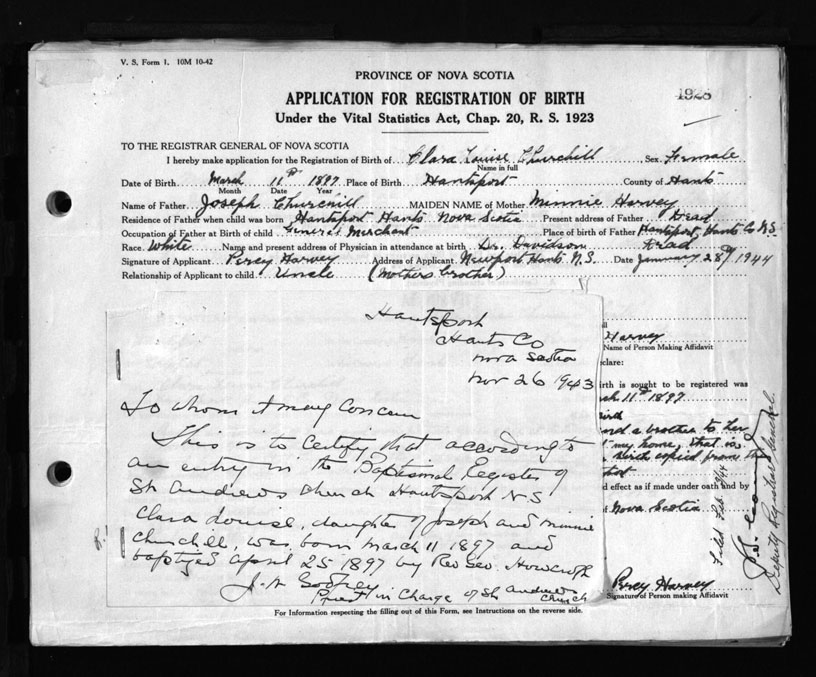 V. S. Form 1. 10M 10-42
PROVINCE OF NOVA SCOTIA
1928
APPLICATION FOR REGISTRATION OF BIRTH
Under the Vital Statistics Act, Chap. 20, R. S. 1923
TO THE REGISTRAR GENERAL OF NOVA SCOTIA
I hereby make application for the Registration of Birth of Clara Louise Churchill, Sex Female
Name in full
Date of Birth March 11th 1897 Place of Birth Hantsport County of Hants
Month Date Year
Name of Father Joseph Churchill MAIDEN NAME of Mother Minnie Harvey
Residence of Father when child was born Hantsport Hants Nova Scotia Present address of Father Dead
Occupation of Father at Birth of child General Merchant Place of birth of Father Hantsport, Hants Co N.S.
Race White Name and present address of Physician in attendance at birth Dr. Davidson Dead
Signature of Applicant Percy Harvey Address of Applicant Newport Hants N.S. Date January 28th 1944
Relationship of Applicant to child Uncle (Mothers brother)
Hantsport
Hants Co
Nova Scotia
Nov 26 1943
To whom it may concern
This is to certify that according to
an entry in the Baptismal Register of
St Andrews Church Hantsport N.S
Clara Louise, daughter of Joseph and Minnie
Churchill, was born March 11 1897 and
baptized April 25 1897 by Rev Geo. Howcroft
Priest in Charge of St Andrews
Church
Harvey
Name of Person Making Affidavit
clare:
irth is sought to be registered was
ch 11th 1897
and a brother to her
t my home, that is
birth copied from the
d effect as if made under oath and by
of Nova Scotia
Filed Feb. 9/44
Deputy Registrar General.
Percy Harvey
Signature of Person making Affidavit
For Information respecting the filling out of this Form, see Instructions on the reverse side.